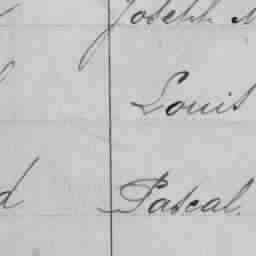 Joseph
Louis
d Pascal.